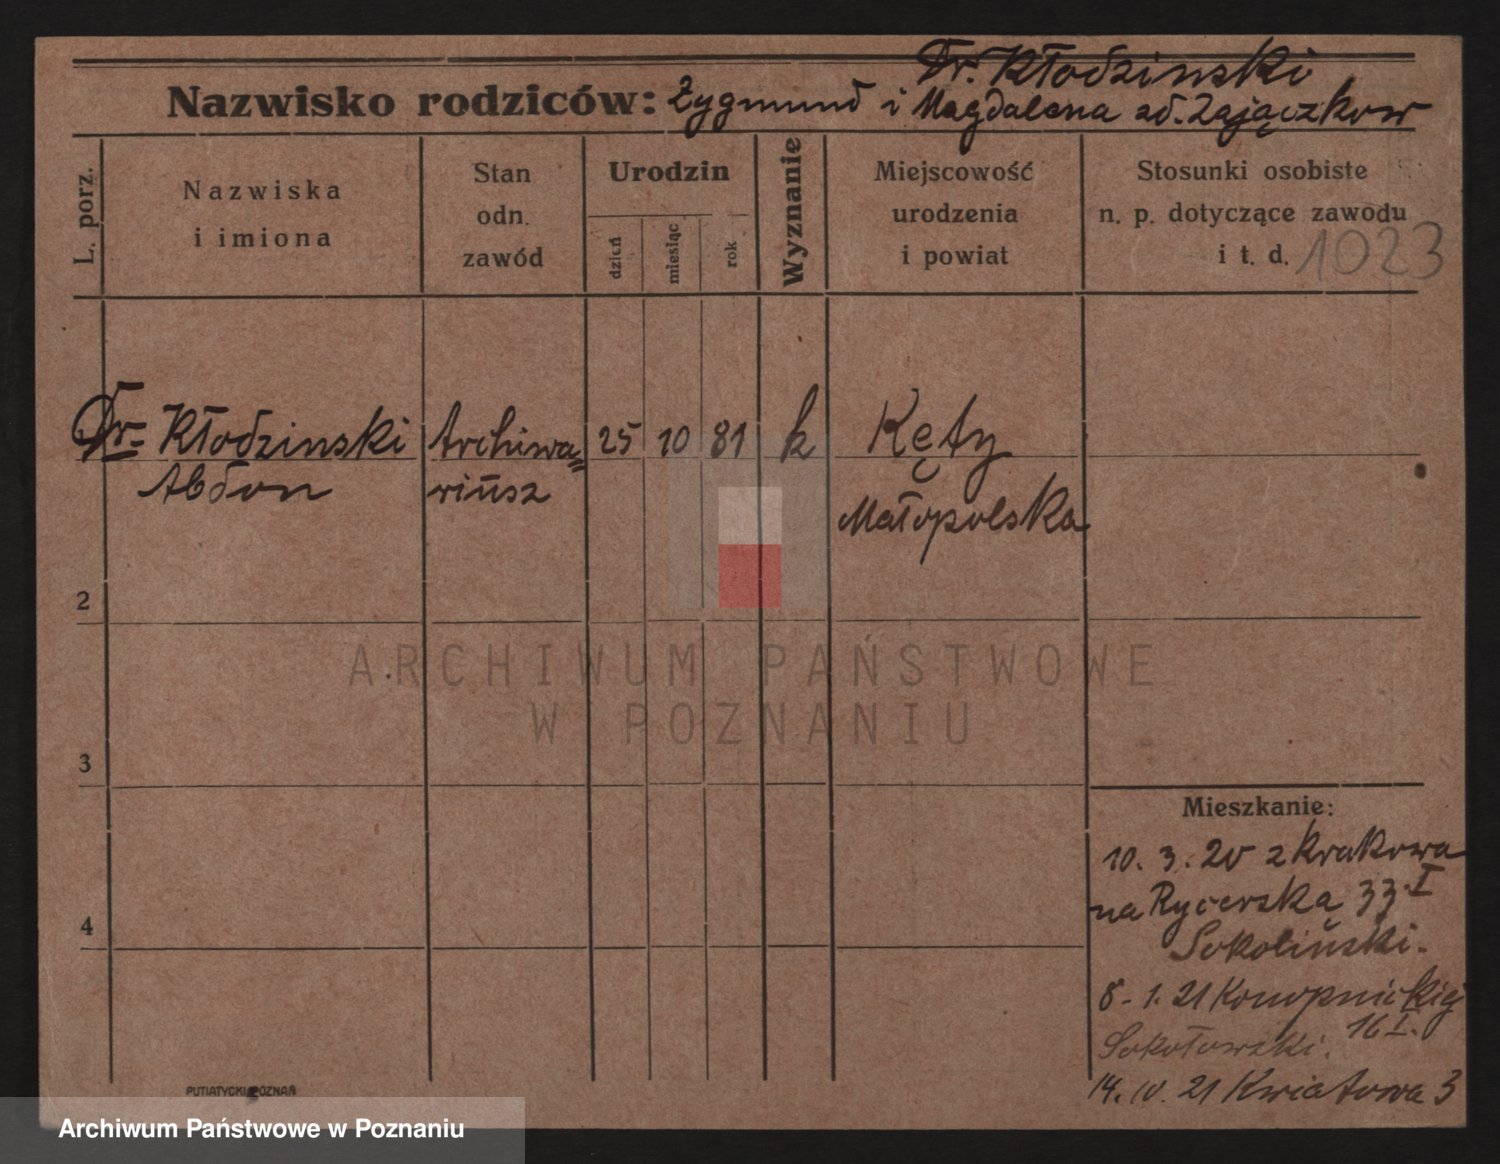 Dr. Kłodzinski
Nazwisko rodziców: Zygmund i Magdalena zd. Zajączkow
L. porz.
Nazwiska
i imiona
Stan
odn.
zawód
Urodzin
dzień
miesiąc
rok
Wyznanie
Miejscowość
urodzenia
i powiat
Stosunki osobiste
n. p. dotyczące zawodu
i t. d.
1023
Dr. Kłodzinski Archiwa= 25 10 81 k Kęty
Abdon riusz Małopolska
2
3
4
Mieszkanie:
10. 3. 20 z Krakowa
na Rycerska 33 I
Sokoliński.
8. 1. 21 Konopnickiej
16 I.
Sokołowski.
14. IV. 21 Kwiatowa 3
PUTIATYCKI POZNAŃ
ARCHIWUM PAŃSTWOWE
W POZNANIU
Archiwum Państwowe w Poznaniu